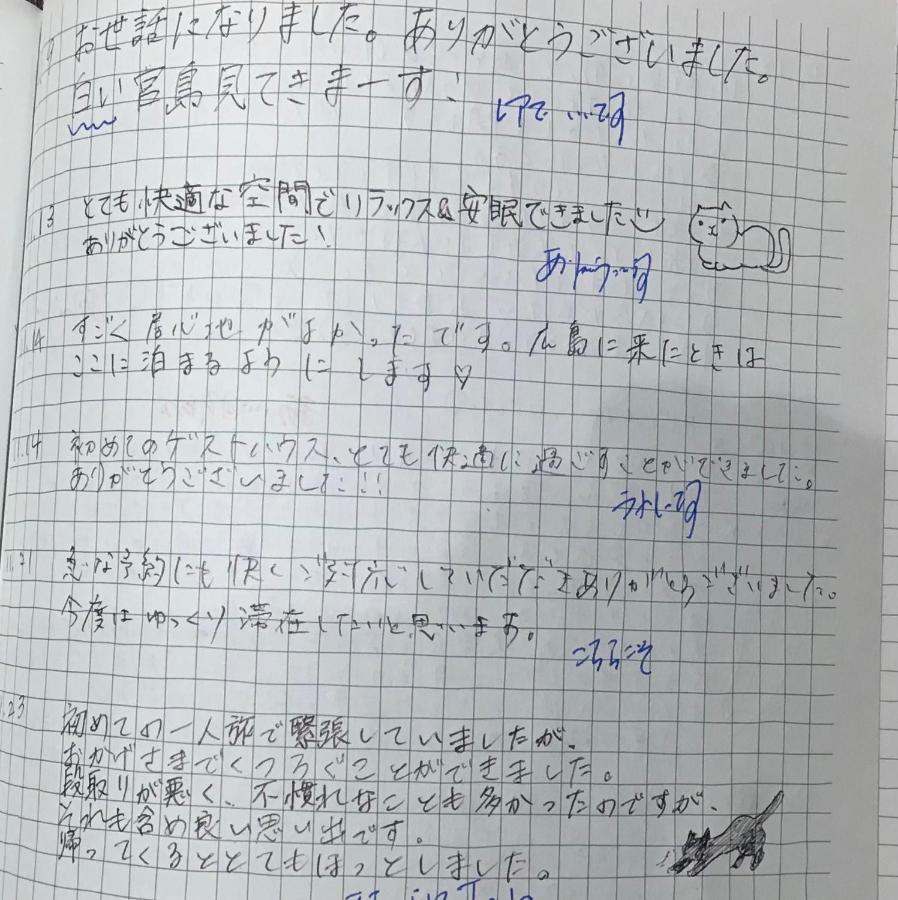 9 お世話になりました。ありがとうございました。
白い宮島見てきまーす!
レアで です
13 とても快適な空間でリラックス&安眠できました
ありがとうございました!
.14 すごく居心地がよかったです。広島に来たときは
ここに泊まるようにします♡
11.14 初めてのゲストハウス、とても快適に過ごすことができました。
ありがとうございました!!!
11.21 急な予約にも快くご対応していただきありがとうございました。
今度はゆっくり滞在したいと思います。
こちらこそ
.23 初めての一人旅で緊張していましたが、
おかげさまでくつろぐことができました。
段取りが悪く、不慣れなことも多かったのですが、
それも含め良い思い出です。
帰ってくるととてもほっとしました。